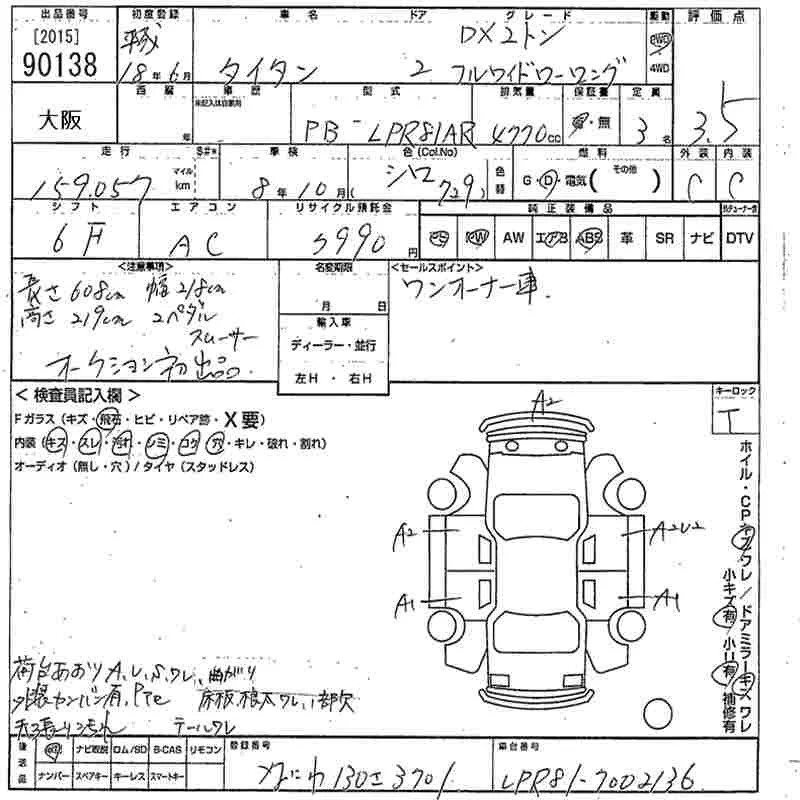 出品番号 初度登録 車名 ドア グレード 駆動 評価点
[2015]
90138
平成
18年6月
タイタン 2
DX2トン
フルワイドローロング
2WD
4WD
3.5
大阪
西暦 年
車歴 未記入は自家用
型式 PB-LPR81AR
排気量 4770cc
保証書 有・無
定員 3名
走行 159,057 マイル km S#*
車検 8年10月
色(Col.No) シロ (729)
色替
燃料 G・D・電気( その他 )
外装 C
内装 C
シフト 6F
エアコン AC
リサイクル預託金 5990円
純正装備品 地デジチューナー付
PS PW AW エアB ABS 革 SR ナビ DTV
<注意事項>
長さ608cm 幅218cm
高さ219cm 2ペダル
スムーサー
オークション初出品.
名変期限
月 日
輸入車
ディーラー・並行
左H ・ 右H
<セールスポイント>
ワンオーナー車.
< 検査員記入欄 >
Fガラス (キズ・飛石・ヒビ・リペア跡・X要)
内装 (キズ・スレ・汚れ・シミ・コゲ・穴・キレ・破れ・割れ)
オーディオ (無し・穴) / タイヤ (スタッドレス)
キーロック
A2
A2 A2U2
A1 A1
ホイル・CPキズワレ / ドアミラーキズワレ
小キズ有 / 小U有 補修有
荷台あおりA,U,S,ワレ,曲がり
外装カンバン有,Pte 床板,根太ワレ,1部欠
テールワレ
後送品
ナビ取説 ロム/SD B-CAS リモコン
ナンバー スペアキー キーレス スマートキー
登録番号 なにわ130さ3701
車台番号 LPR81-7002136